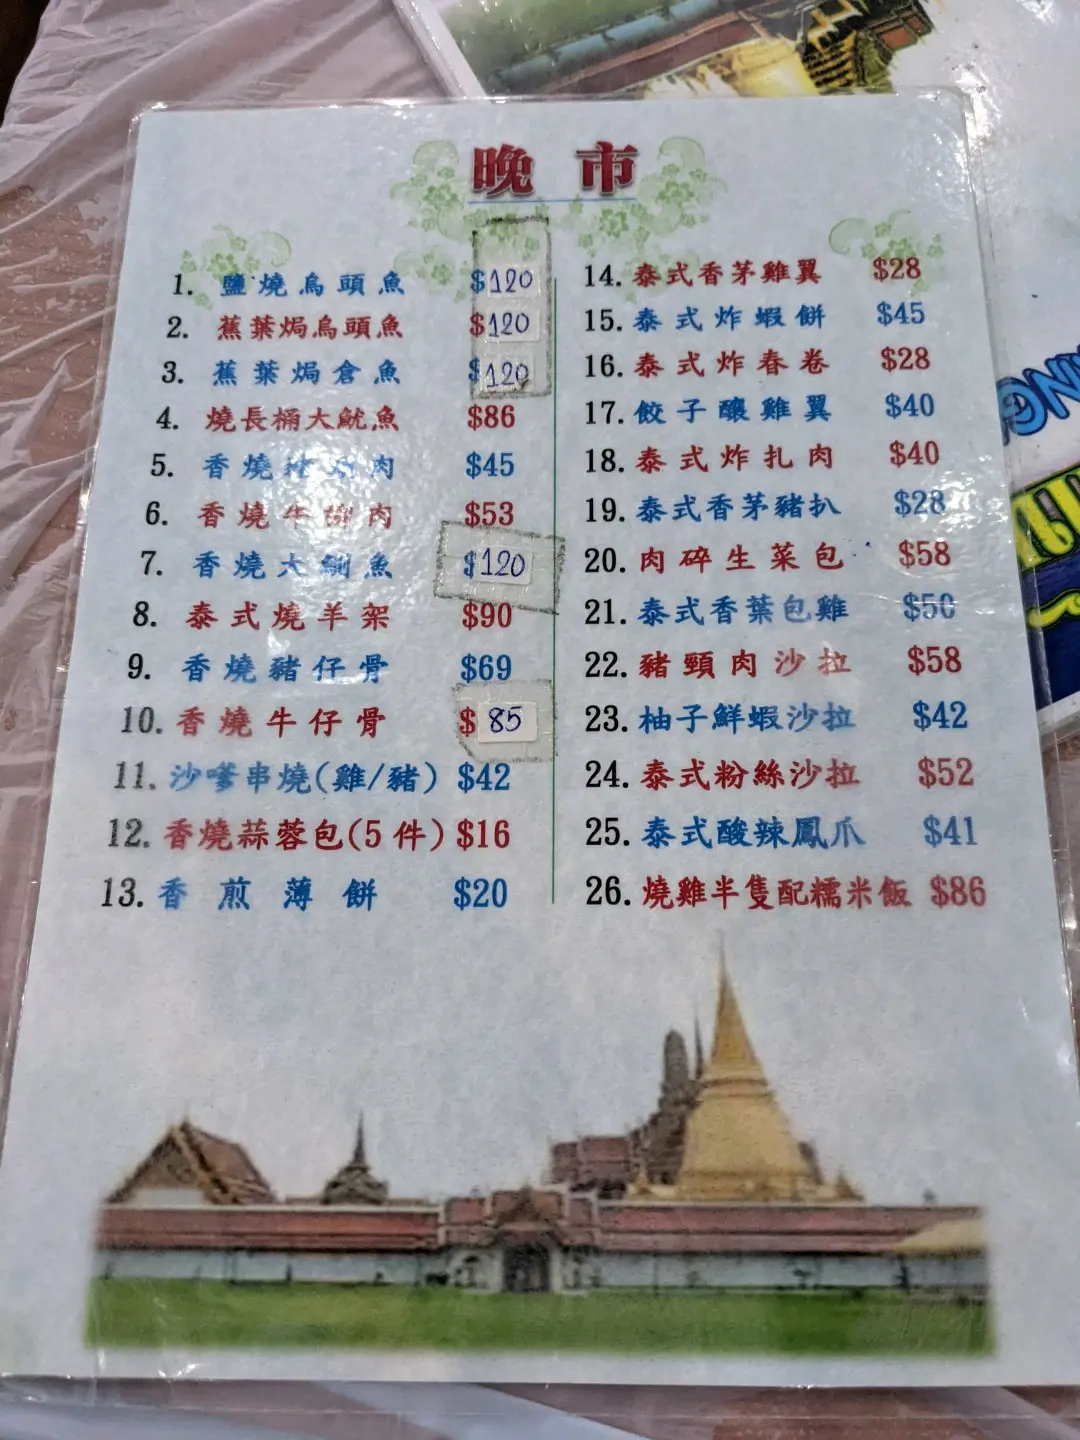 晚市
1. 鹽燒烏頭魚 $120
2. 蕉葉焗烏頭魚 $120
3. 蕉葉焗倉魚 $120
4. 燒長桶大魷魚 $86
5. 香燒 肉 $45
6. 香燒牛柳肉 $53
7. 香燒大鯏魚 $120
8. 泰式燒羊架 $90
9. 香燒豬仔骨 $69
10. 香燒牛仔骨 $85
11. 沙嗲串燒(雞/豬) $42
12. 香燒蒜蓉包(5件) $16
13. 香煎薄餅 $20
14. 泰式香茅雞翼 $28
15. 泰式炸蝦餅 $45
16. 泰式炸春卷 $28
17. 餃子釀雞翼 $40
18. 泰式炸扎肉 $40
19. 泰式香茅豬扒 $28
20. 肉碎生菜包 $58
21. 泰式香葉包雞 $50
22. 豬頸肉沙拉 $58
23. 柚子鮮蝦沙拉 $42
24. 泰式粉絲沙拉 $52
25. 泰式酸辣鳳爪 $41
26. 燒雞半隻配糯米飯 $86